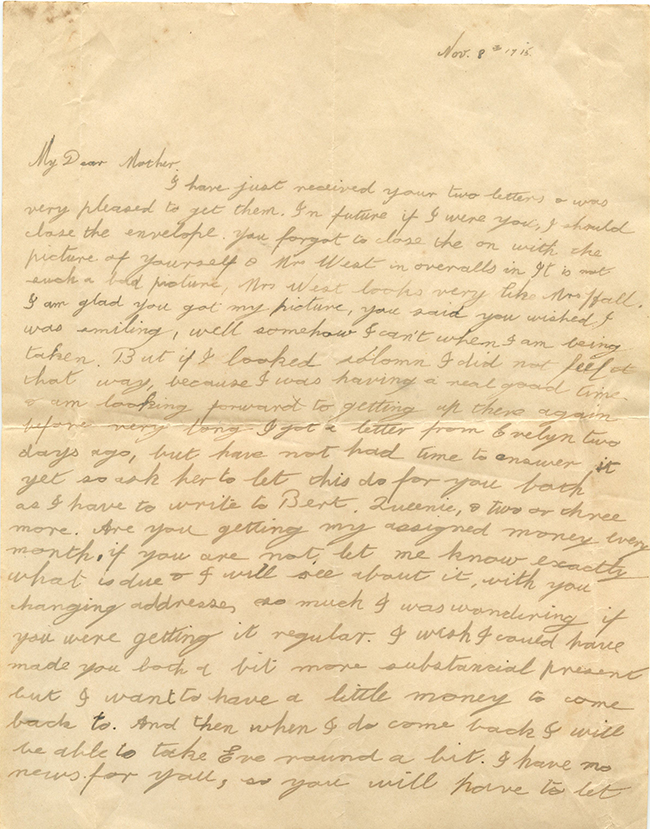 Nov. 8th 1918.
My Dear Mother
I have just received your two letters & was
very pleased to get them. In future if I were you, I should
close the envelope. you forgot to close the on with the
picture of yourself & Mrs West in overalls in It is not
such a bad picture, Mrs West looks very like Mrs Hall.
I am glad you got my picture, you said you wished I
was smiling, well somehow I can't when I am being
taken. But if I looked solomn I did not feel at
that way, because I was having a real good time.
& am looking forward to getting up there again
before very long. I got a letter from Evelyn two
days ago, but have not had time to answer it
yet so ask her to let this do for you both
as I have to write to Bert. Queenie, & two or three
more. Are you getting my assigned money every
month, if you are not, let me know exactly
what is due & I will see about it, with you
changing addresses, so much I was wondering if
you were getting it regular. I wish I could have
made you both a bit more substancial present
but I want to have a little money to come
back to. And then when I do come back I will
be able to take Eve round a bit. I have no
news for you, so you will have to let